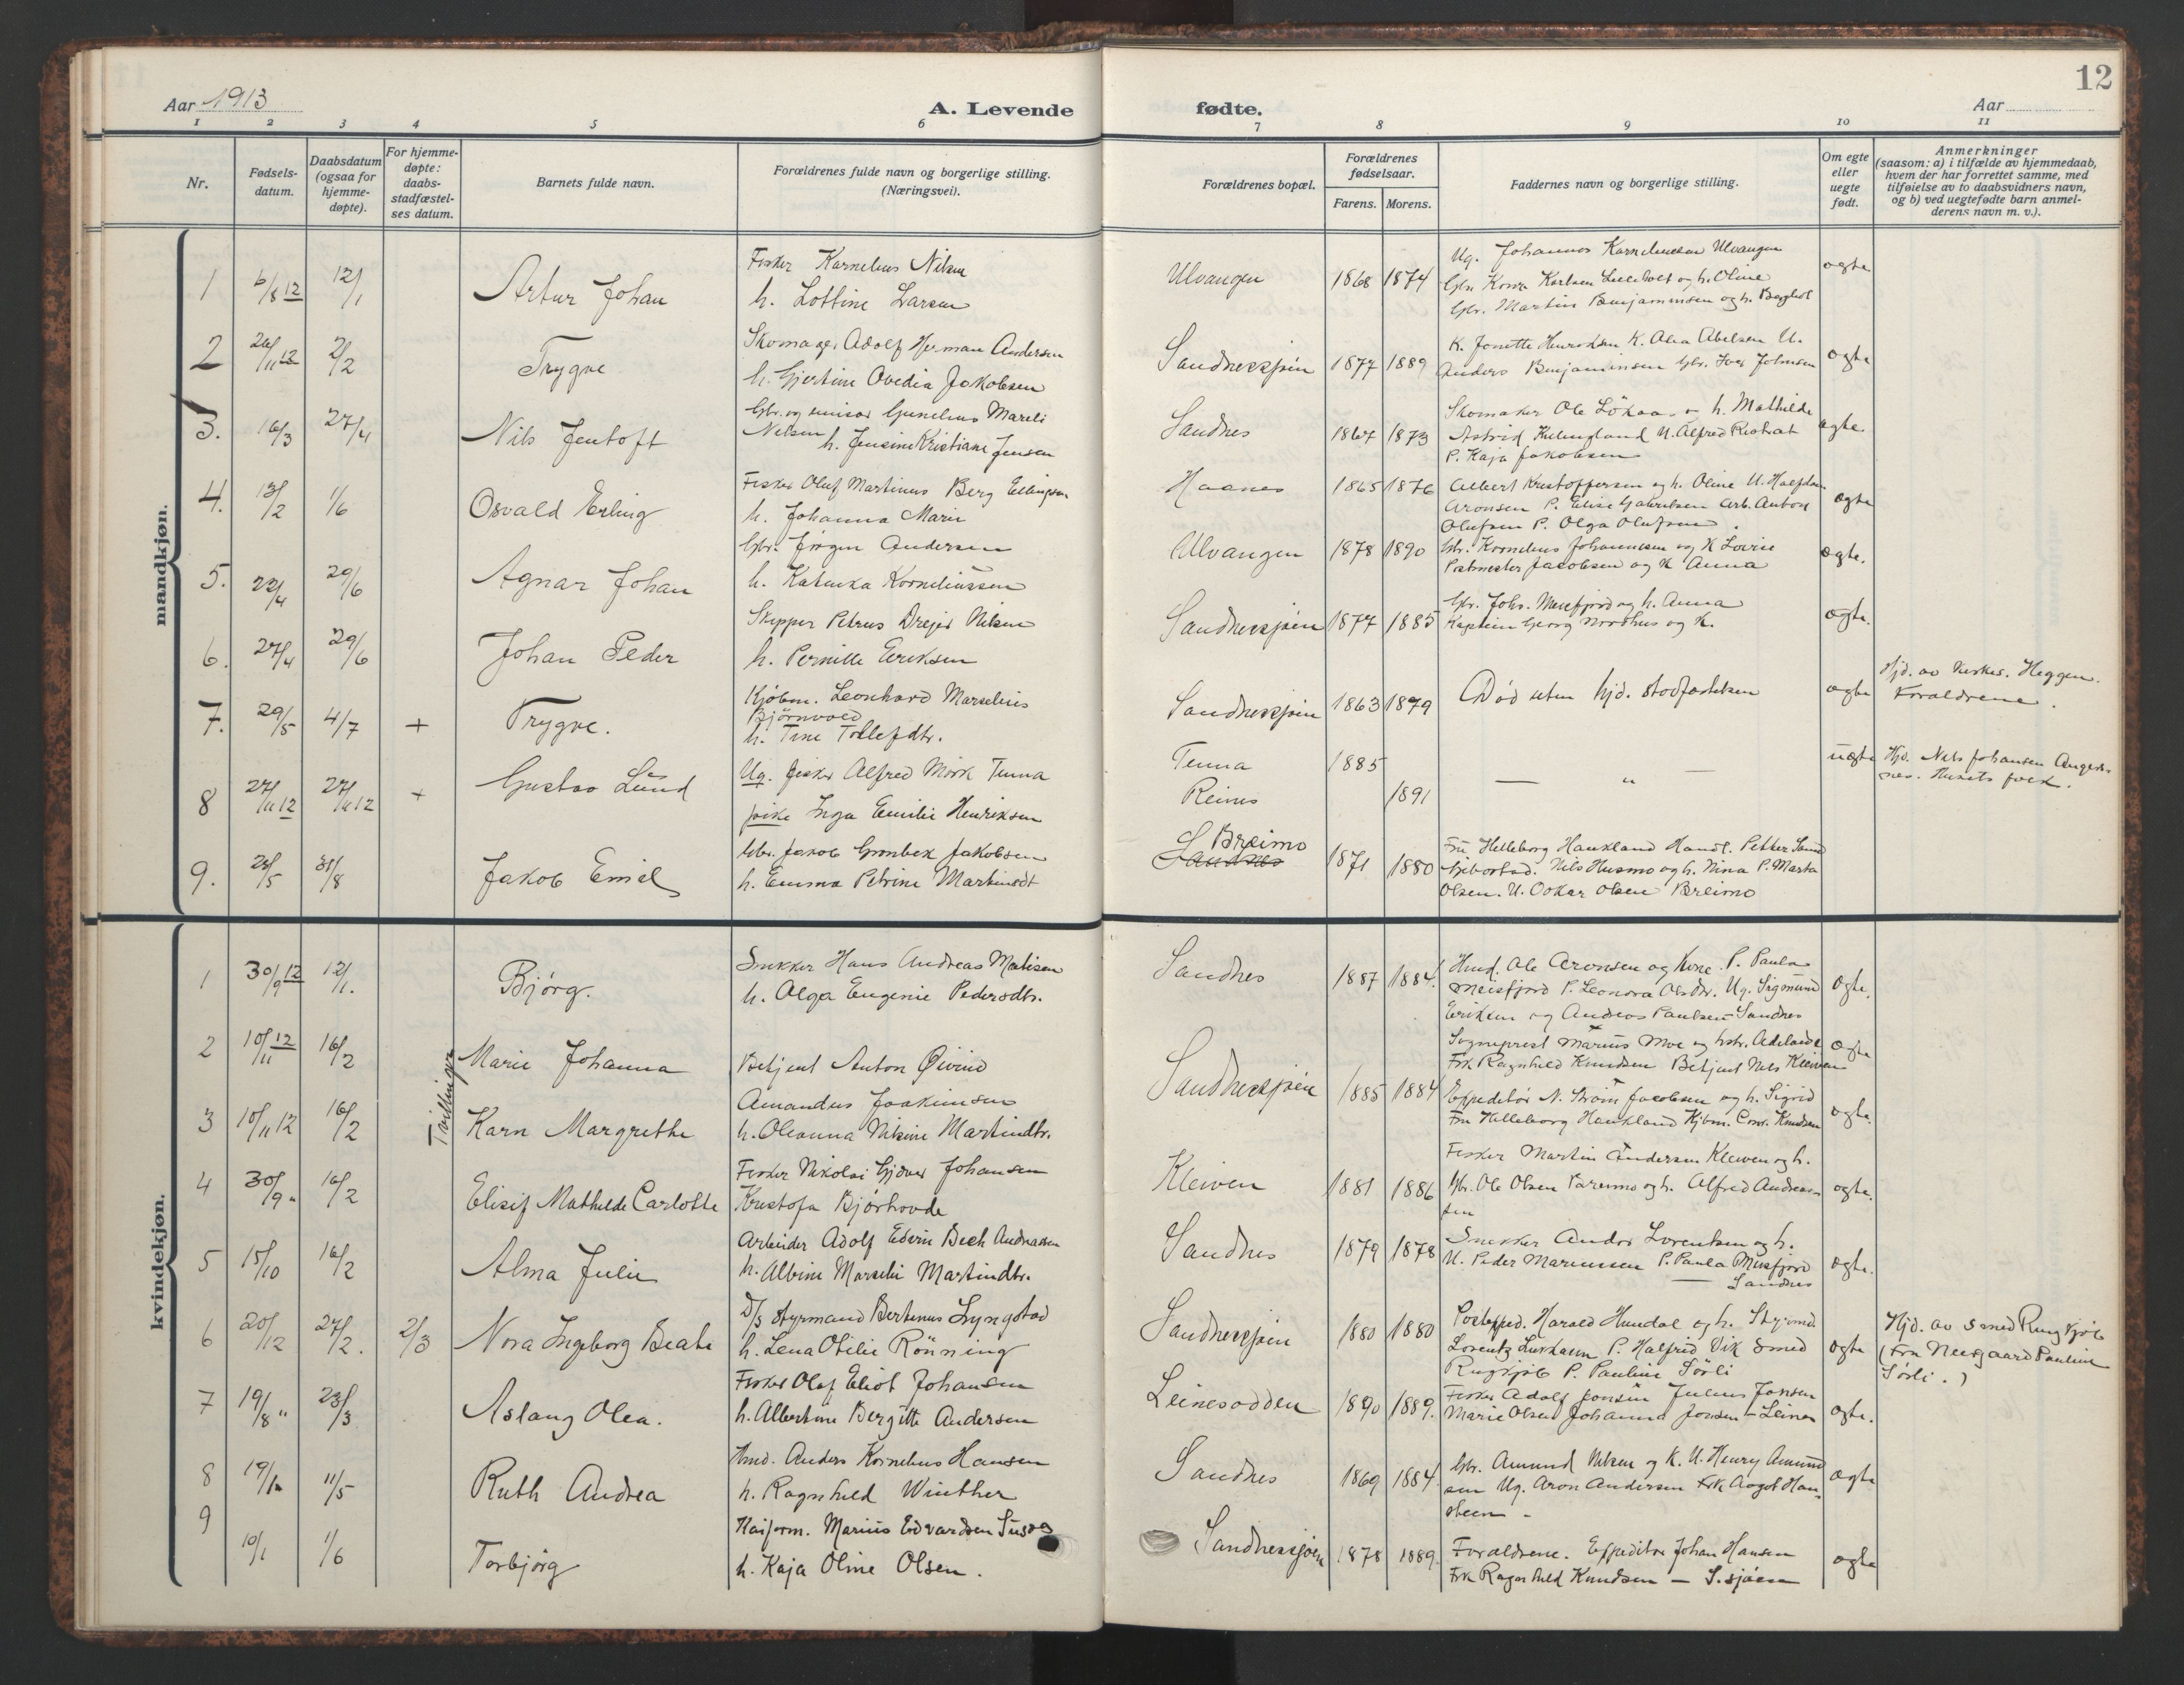 12
Aar 1913
A. Levende fødte.
Aar
1 2 3 4 5 6 7 8 9 10 11
Nr.
Fødsels-
datum.
Daabsdatum
(ogsaa for
hjemme-
døpte).
For hjemme-
døpte:
daabs-
stadfæstel-
ses datum.
Barnets fulde navn.
Forældrenes fulde navn og borgerlige stilling.
(Næringsvei).
Forældrenes bopæl.
Forældrenes
fødselsaar.
Farens. Morens.
Faddernes navn og borgerlige stilling.
Om egte
eller
uegte
født.
Anmerkninger
(saasom: a) i tilfælde av hjemmedaab,
hvem der har forrettet samme, med
tilføielse av to daabsvidners navn,
og b) ved uegtefødte barn anmel-
derens navn m. v.).
mandkjøn.
1 6/8 12 12/1 Artur Johan
Fisker Kornelius Nilsen
h. Lottine Larsen
Ulvangen 1868 1874
Ug. Johannes Ulvangen
og h. Oline
Gbr. Martin Benjaminsen og h.
egte
2 26/11 12 2/2 Trygve
Skomager Adolf Herman Andersen
h. Gjertine Ovedia Jakobsen
Sandnessjøen 1877 1889
K. Jonette Henriksen K. Abelsen U.
Anders Benjaminsen Gbr. Iver Johnsen
egte
3. 16/3 27/4 Nils Jentoft
Gbr. og Mareli
Nilsen h. Jensine Kristiane Jensen
Sandnes 1867 1873
Skomaker Ole Lökaas h. Mathilde
Astrid U. Alfred
P. Kaja Jakobsen
egte
4. 13/2 1/6 Osvald Erling
Fisker Oluf Martinus Berg Ellingsen
h. Johanna Marie
Haanes 1865 1876
Albert Kristoffersen og h. Oline U. Halfdan
Aronsen P. Elise Gabrielsen Arb. Anton
Olufsen P. Olga Olufsen.
egte
5. 22/4 29/6 Agnar Johan
Gbr. Jörgen Andersen
h. Katinka Korneliussen
Ulvangen 1878 1890
Gbr. Kornelius Johannesen og K Lovise
Postmester Jacobsen og K Anna
egte.
6. 27/4 29/6 Johan Peder
Skipper Petrus Drejer Nilsen
h. Pernille Eriksen
Sandnessjøen 1877 1885
Gbr. Johs. Meisfjord og h. Anna
Kaptein Georg Nordhus og K.
egte.
7. 29/5 4/7 + Trygve.
Kjøbm. Leonhard Marselius
Bjørnvold
h. Tine Tollefdtr.
Sandnessjøen 1863 1879
Død uten hjd. stadfæstelsen
egte
Hjd. av Kirkes. Heggen.
Forældrene.
8 27/11 12 27/11 12 + Gustav Lund
Ug. fisker Alfred Mörk Tenna
pike Inga Emilie Henriksen
Tenna 1885
Reines 1891
— " —
uegte
Hjd. Nils Johansen
nes. Husets folk.
9. 23/5 31/8 Jakob Emil
Gbr. Jakob Grønbek Jakobsen
h. Emma Petrine Martinsdt
Breimo
Sandnes
1871 1880
Fru Helleborg Haukland Handl. Petter
Nils Husmo og h. Nina P. Marta
Olsen. U. Oskar Olsen Breimo
kvindekjøn.
1 30/9 12 12/1. Bjørg.
Snekker Hans Andreas Matisen
h. Olga Eugenie Pedersdtr.
Sandnes 1887 1884.
Hmd. Ole Aronsen og kone. P. Paula
Meisfjord P. Leonora Olsdtr. Ug. Sigmund
Eriksen og Andreas Paulsen Sandnes
egte.
Tvillinger
2 10/11 12 16/2 Marie Johanna
3 10/11 12 16/2 Karn Margrethe
Betjent Anton Øivind
Amandus Joakimsen
h. Oleanna Nilsine Martindtr.
Sandnessjøen 1885 1884
Sogneprest Marius Moe og hstr. Adelaide
Frk Ragnhild Knudsen Betjent Nils Kleiven
Expeditör N. Ström Jacobsen og h. Sigrid
Fru Helleborg Haukland Kjbm. Conr. Knudsen
egte
egte.
4 30/9 " 16/2 Elisif Mathilde Carlotte
Fisker Nikolai Gjöver Johansen
Kristofa Bjørhovde
Kleiven 1881 1886
Fisker Martin Andersen Kleiven og h.
Gbr. Ole Olsen Breimo og h. Alfred Andreas-
sen
egte.
5 15/10 16/2 Alma Julie
Arbeider Adolf Edvin Bech Andreassen
h. Albine Marselie Martindtr.
Sandnes 1879 1878
Snekker Andor Lorentsen og h.
U. Peder Mariussen P. Paula Meisfjord
— Sandnes
egte.
6 20/12 27/2. 2/3 Nora Ingeborg Beate
D/S styrmand Bertinus Lyngstad
h. Lena Otilie Rönning
Sandnessjøen 1880 1880
Postexped. Harald Hundal og h. Styrmd
Lorentz P. Halfrid Vik Smed
Ringkjöb P. Pauline Sörli
egte
Hjd. av smed Ringkjöb
(Fru Neergaard Pauline
Sörli.)
7 19/8 " 23/3 Aslaug Olea.
Fisker Olaf Eliot Johansen
h. Albertine Bergitte Andersen
Leinesodden 1890 1889.
Fisker Adolf Jonsen Julius Jonsen
Marie Olsen Johanna Jonsen - Leines
egte.
8 11/5 Ruth Andrea
Hmd. Anders Kornelius Hansen
h. Ragnhild Winther
Sandnes 1869 1884.
Gbr. Amund Nilsen og K. U. Henry Amund
sen Ug. Aron Andersen Frk Aagot Han-
steen -
egte
9 10/1 1/6 Torbjörg
Kaiform. Marius Edvardsen
h. Kaja Oline Olsen.
Sandnessjøen 1878 1889.
Forældrene. Expeditör Johan Hansen
Frk Ragnhild Knudsen — S.sjöen
egte